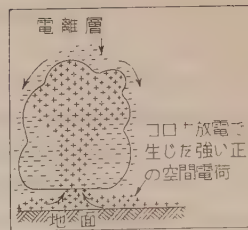 電離層
コロナ放電で
生じた強い正
の空間電荷
地面